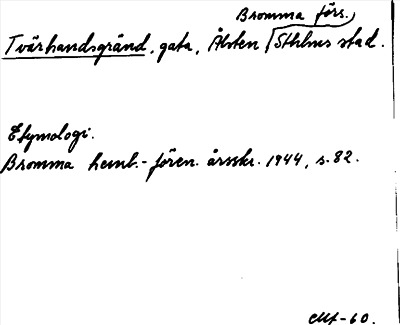 Bromma förs.
Tvärhandsgränd, gata, Ålsten Sthlms stad.
Etymologi.
Bromma hemb.-fören. årsskr. 1944, s. 82.
-60.